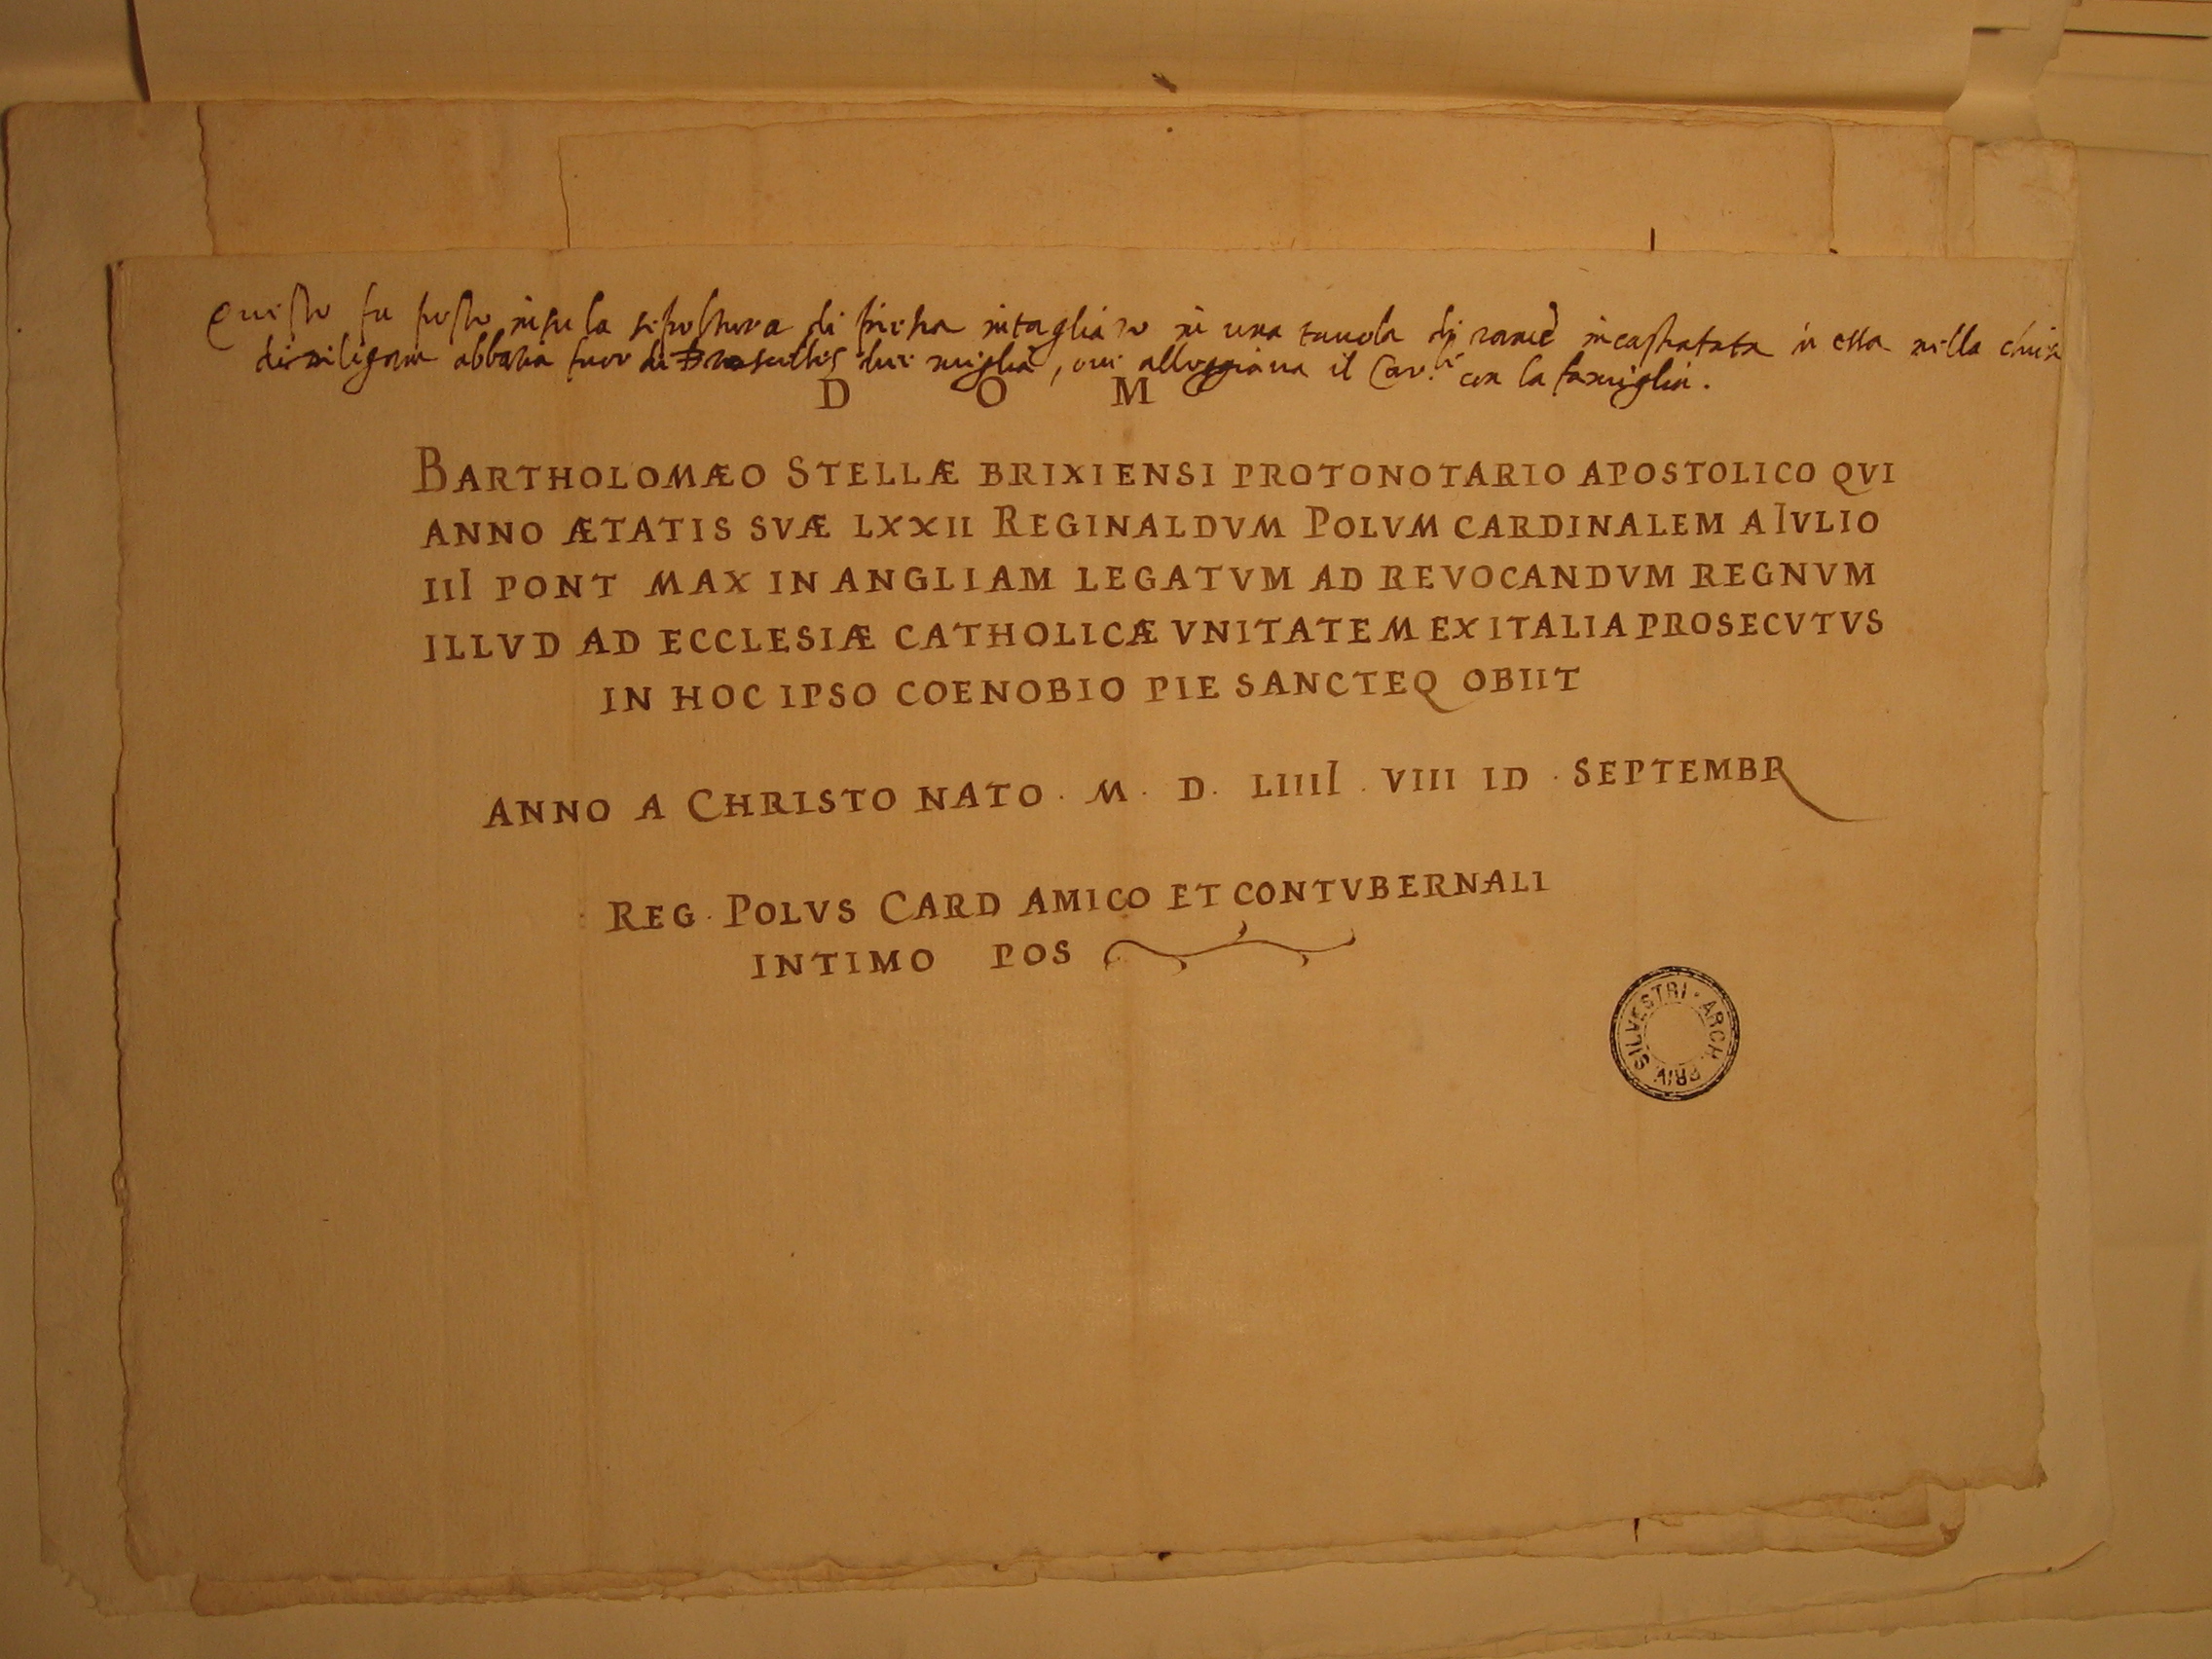 Questo fu posto in su la sepoltura di pietra intagliato in una tauola di rame incastratata in essa nella chiesa
abbatia fuor di due miglia, oue alloggiaua il Car.le con la famiglia.
D O M
BARTHOLOMÆO STELLÆ BRIXIENSI PROTONOTARIO APOSTOLICO QVI
ANNO ÆTATIS SVÆ LXXII REGINALDVM POLVM CARDINALEM A IVLIO
III PONT MAX IN ANGLIAM LEGATVM AD REVOCANDVM REGNVM
ILLVD AD ECCLESIÆ CATHOLICÆ VNITATEM EX ITALIA PROSECVTVS
IN HOC IPSO COENOBIO PIE SANCTEQ OBIIT
ANNO A CHRISTO NATO . M . D . LIIII . VIII ID . SEPTEMBR
REG . POLVS CARD AMICO ET CONTVBERNALI
INTIMO POS
ARCH. PRIV. SILVESTRI